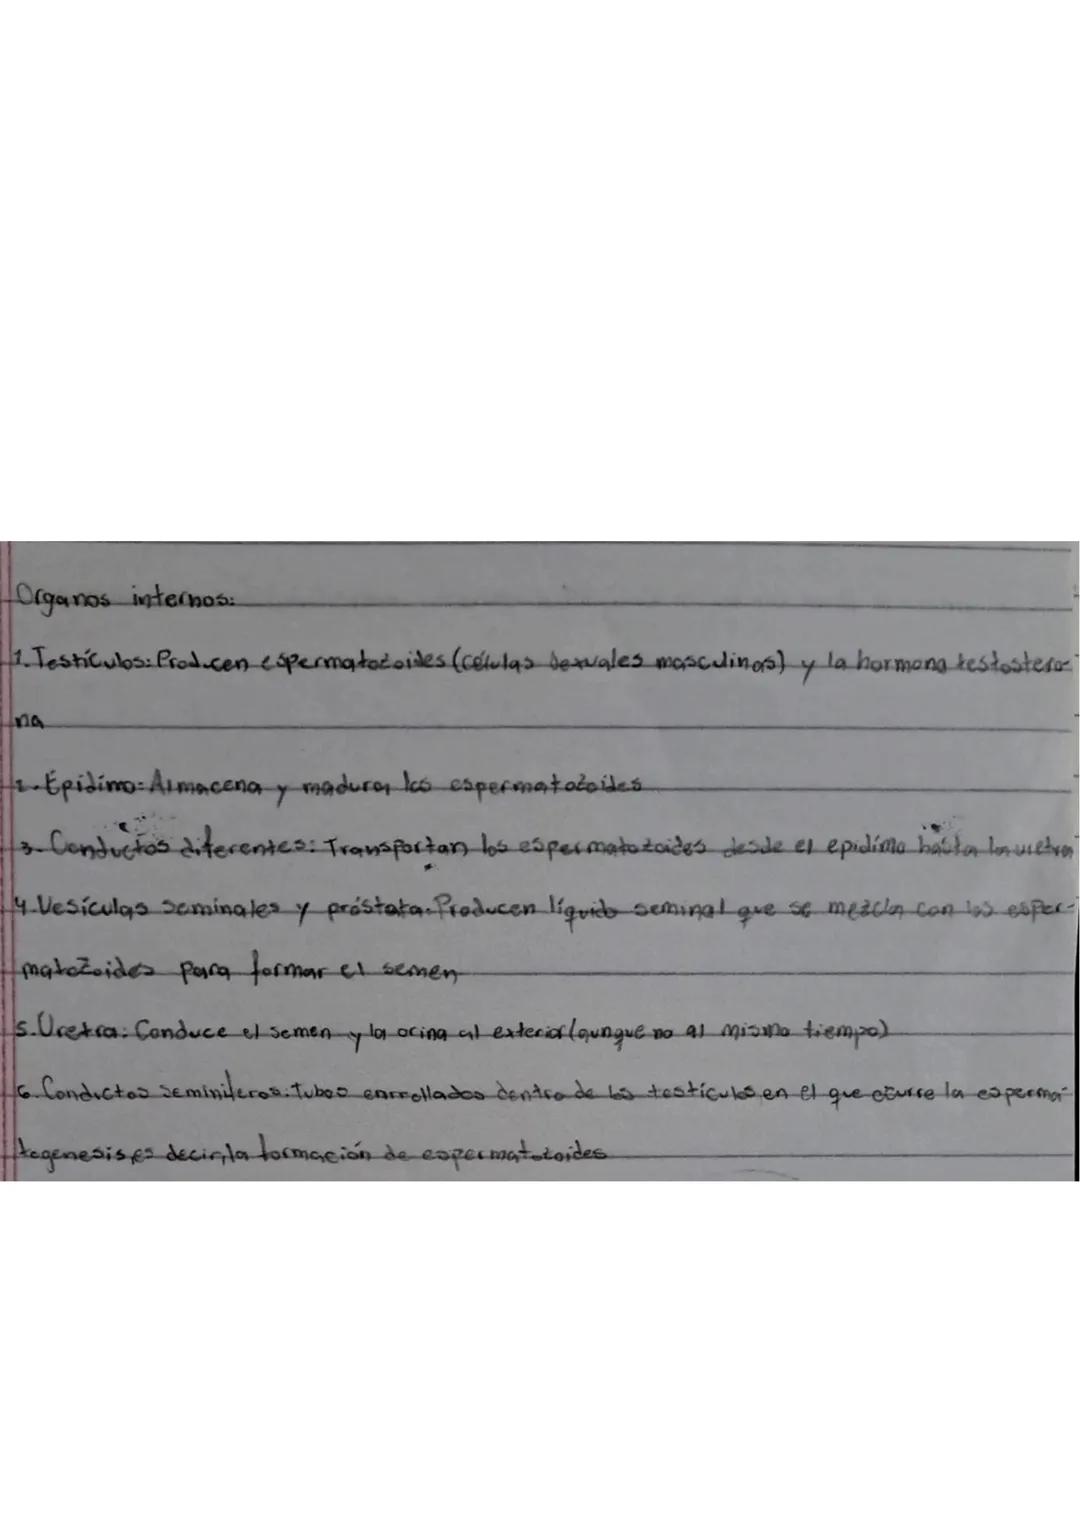 Organos internos:
1. Testículos: Producen espermatozoides (células sexuales masculinas) y la hormona testostero-
na
2. Epidimo: Almacena y madura los espermatozoides
3. Conductos diferentes: Transportan los espermatozoides desde el epidimo hasta la uretra
4. Vesículas seminales y próstata: Producen líquido seminal que se mezcla con los esper-
matozoides para formar el semen
5. Uretra: Conduce el semen y la orina al exterior (aunque no al mismo tiempo)
6. Conductos seminiferos: Tubos enrrollados dentro de los testículos, en el que ocurre la esperma-
togenesis, es decir, la formación de espermatozoides